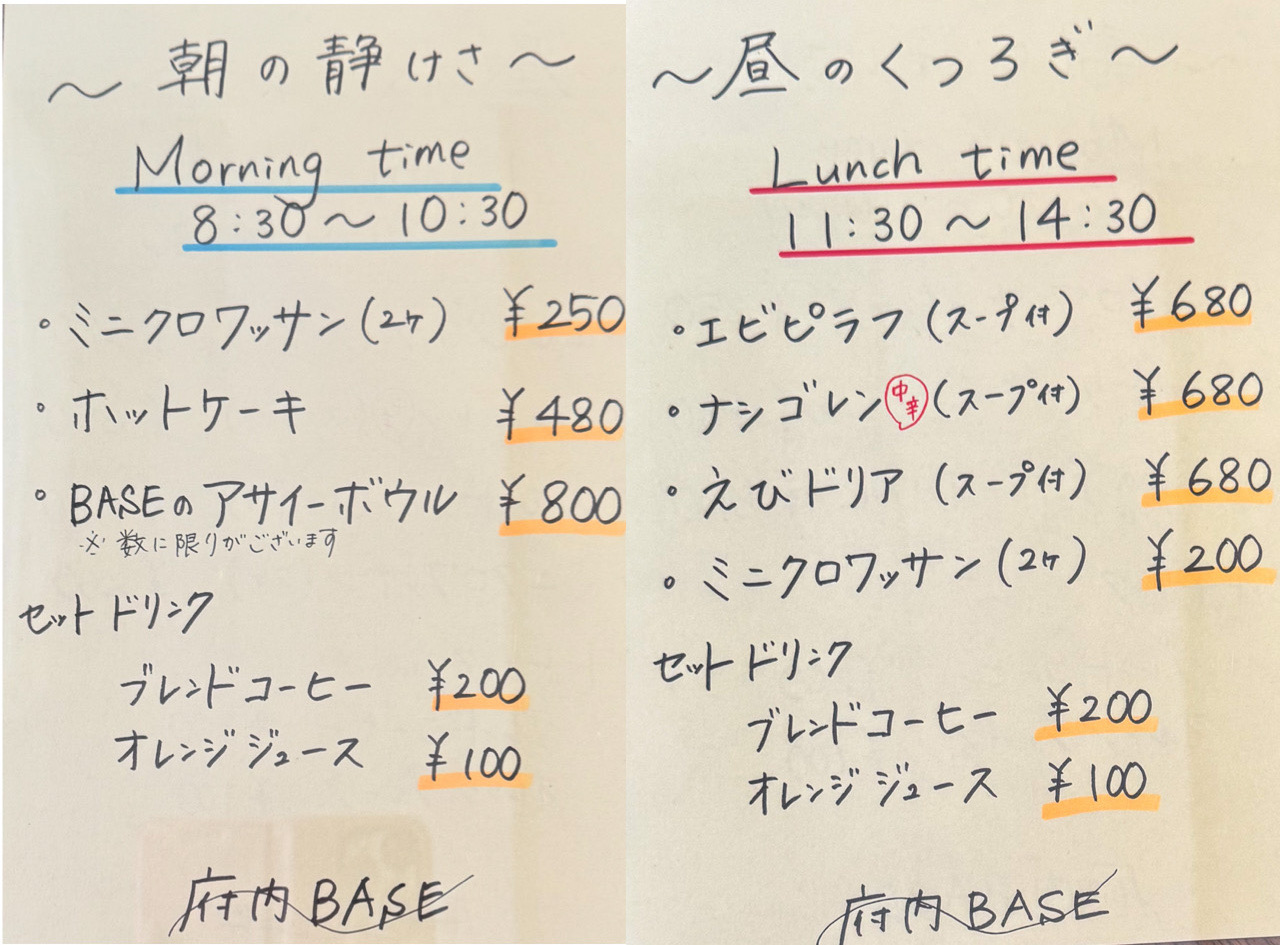 ～朝の静けさ～
Morning time
8:30～10:30
・ミニクロワッサン(2ヶ) ¥250
・ホットケーキ ¥480
・BASEのアサイーボウル ¥800
※数に限りがございます
セットドリンク
ブレンドコーヒー ¥200
オレンジジュース ¥100
府内BASE
～昼のくつろぎ～
Lunch time
11:30～14:30
・エビピラフ(スープ付) ¥680
・ナシゴレン中辛(スープ付) ¥680
・えびドリア(スープ付) ¥680
・ミニクロワッサン(2ヶ) ¥200
セットドリンク
ブレンドコーヒー ¥200
オレンジジュース ¥100
府内BASE